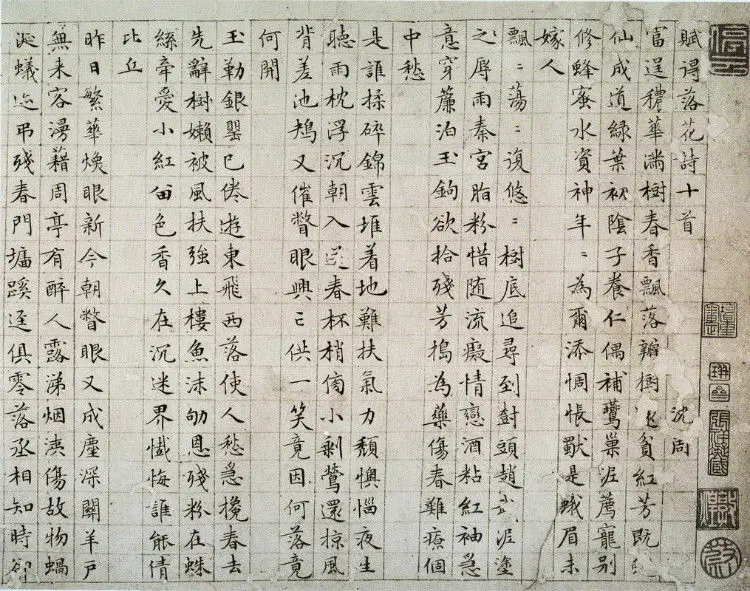 賦得落花詩十首 沈周
富逞穠華滿樹春香飄落瓣樹貧紅芳既
仙成道綠葉初陰子養仁偶補鶯巢泥薦寵別
修蜂蜜水資神年〻為爾添惆悵獃是蛾眉未
嫁人
飄〻蕩〻復悠〻樹底追尋到樹頭趙武泥塗
之辱雨秦宮脂粉惜随流癡情戀酒粘紅袖急
意穿簾泊玉鉤欲拾殘芳搗為藥傷春難療個
中愁
是誰揉碎錦雲堆着地難扶氣力頹懊惱夜生
聽雨枕浮沉朝入送春杯梢傍小剩鶯還掠風
背差池鳩又催瞥眼興亡供一笑竟因何落竟
何開
玉勒銀罌已倦遊東飛西落使人愁急攙春去
先辭樹嬾被風扶強上樓魚沫劬恩殘粉在蛛
絲牽愛小紅留色香久在沉迷界懺悔誰能倩
比丘
昨日繁華煥眼新今朝瞥眼又成塵深關羊戶
無未客漫藉周亭有醉人露涕烟洟傷故物蝸
涎蟻迹弔殘春門墻蹊逕俱零落丞相知時卻